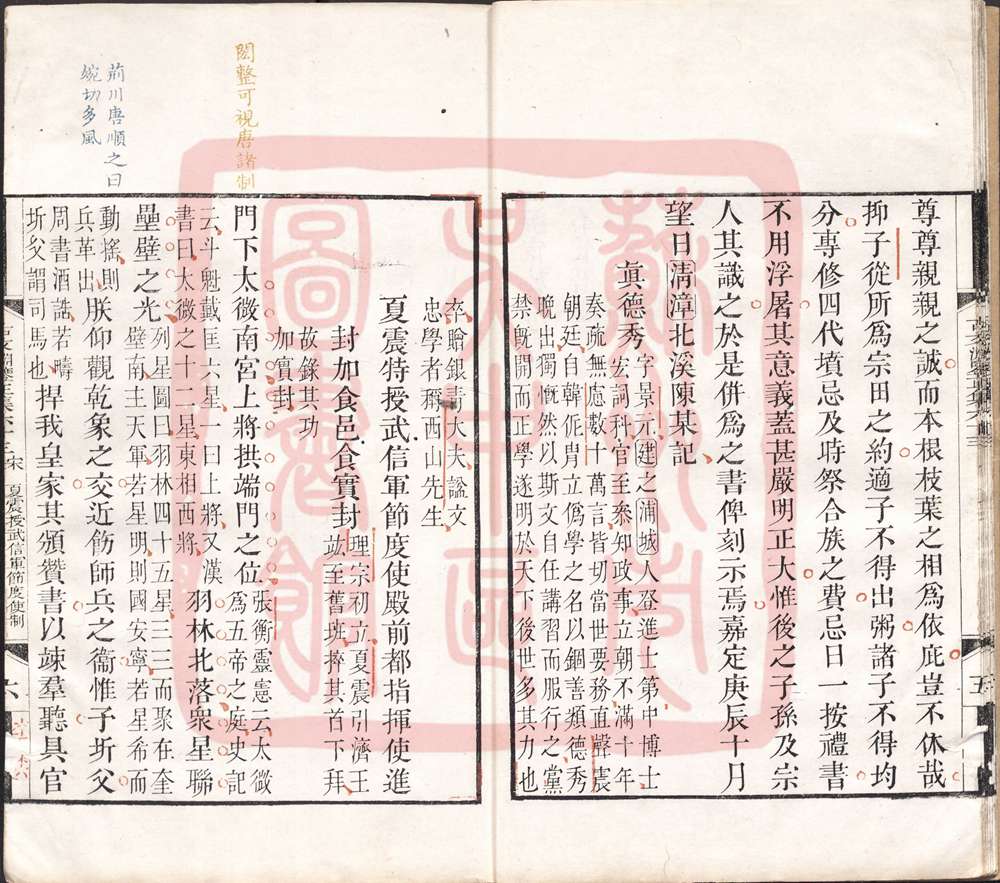 尊尊親親之誠而本根枝葉之相爲依庇豈不休哉
抑子從所爲宗田之約適子不得出粥諸子不得均
分專修四代墳忌及時祭合族之費忌日一按禮書
不用浮屠其意義蓋甚嚴明正大惟後之子孫及宗
人其識之於是併爲之書俾刻示焉嘉定庚辰十月
望日清漳北溪陳某記
眞德秀
字景元建之浦城人登進士第中博士
宏詞科官至叅知政事立朝不滿十年
奏疏無慮數十萬言皆切當世要務直聲震
朝廷自韓侂胄立僞學之名以錮善類德秀
晚出獨慨然以斯文自任講習而服行之黨
禁旣開而正學遂明於天下後世多其力也
五
卒贈銀青大夫諡文
忠學者稱西山先生
夏震特授武信軍節度使殿前都指揮使進
封加食邑食實封
理宗初立夏震引濟王
竝至舊班捽其首下拜
故錄其功
加實封
門下太微南宮上將拱端門之位
張衡靈憲云太微
爲五帝之庭史記
云斗魁戴匡六星一曰上將又漢
書曰太微之十二星東相西將
羽林北落衆星聯
壘壁之光
列星圖曰羽林四十五星三三而聚在奎
壁南主天軍若星明則國安寧若星希而
動搖則
兵革出
朕仰觀乾象之交近飭師兵之衞惟予圻父
周書酒誥若疇
圻父謂司馬也
捍我皇家其頒贊書以竦羣聽具官
宋
夏震授武信軍節度使制
六
閎整可視唐諸制
荊川唐順之曰
婉切多風